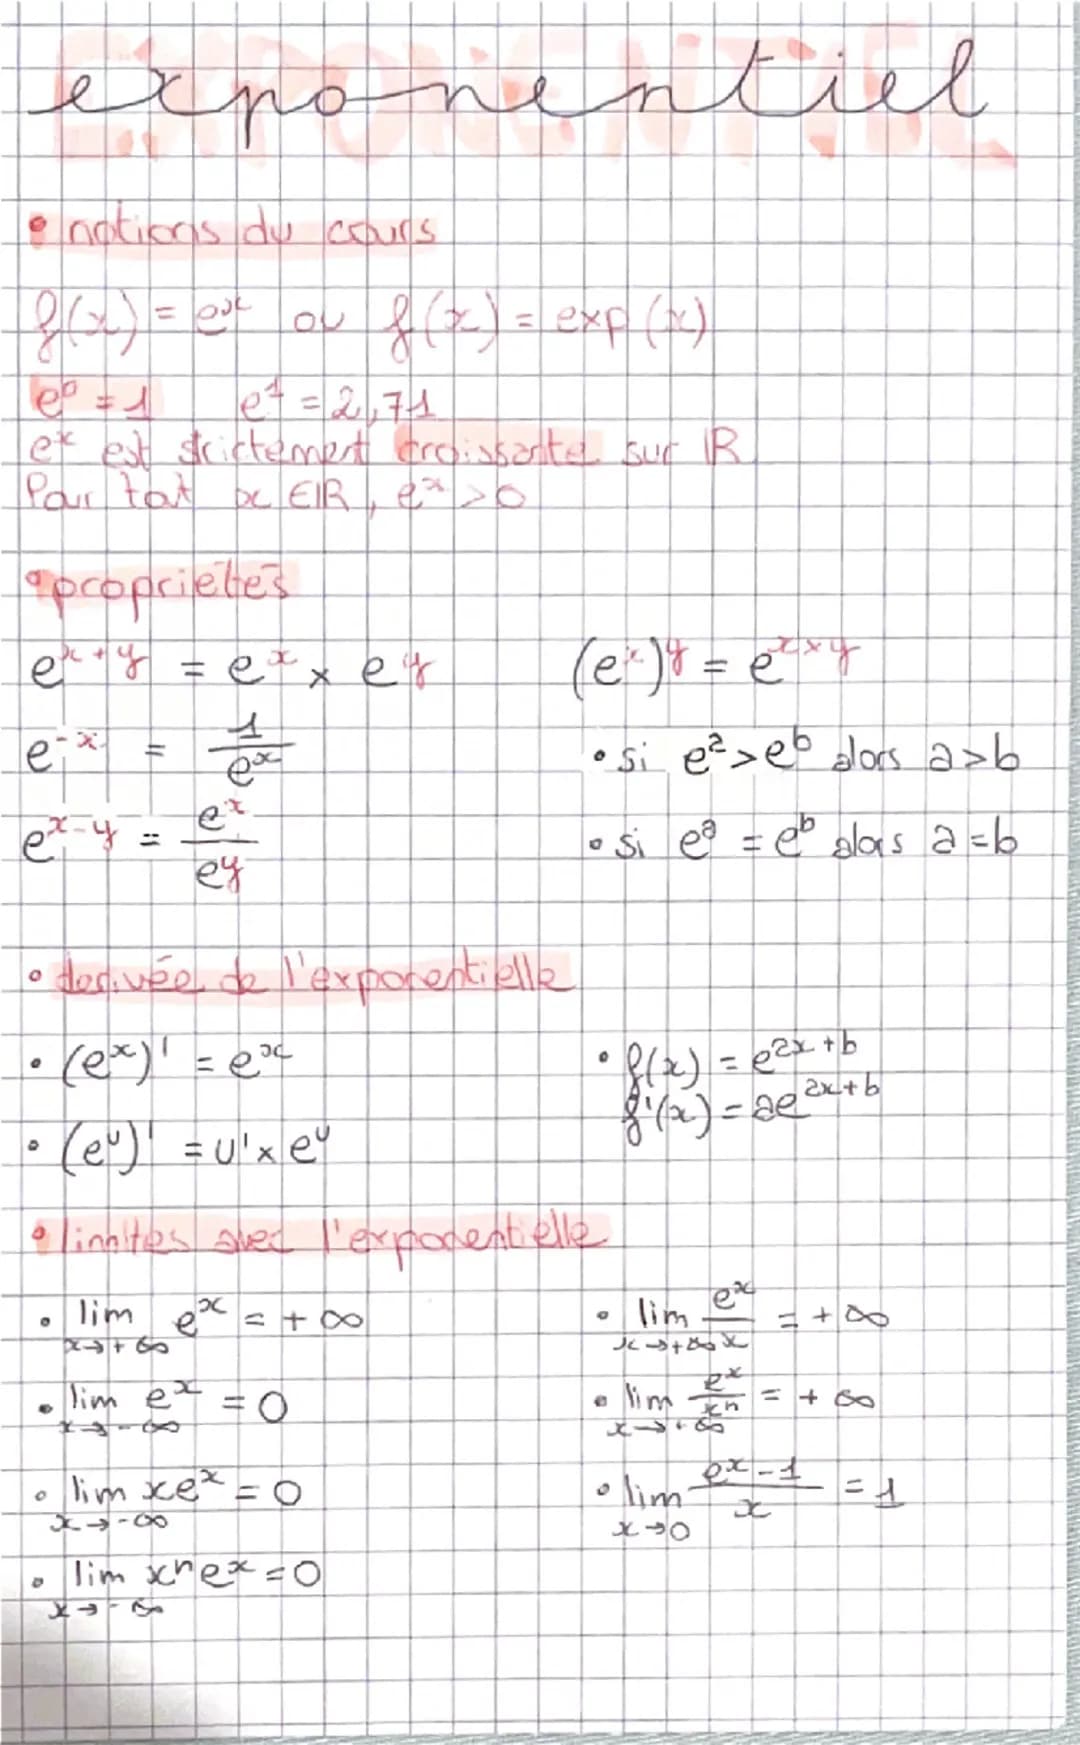 EXPONENTIEL
exponentiel
• notions du cours
f(x) = eˣ ou f(x) = exp(x)
e⁰ = 1 e¹ = 2,71
eˣ est strictement croissante sur ℝ
Pour tout x ∈ ℝ, eˣ > 0
• propriétés
e^(x+y) = e^x × e^y (e^x)^y = e^(x×y)
e^(-x) = 1/e^x • si e^a > e^b alors a > b
e^(x-y) = e^x/e^y • si e^a = e^b alors a = b
• derivée de l'exponentielle
• (e^x)' = e^x • f(x) = e^(ax+b)
f'(x) = ae^(ax+b)
• (e^u)' = u' × e^u
• limites avec l'exponentielle
• lim x→+∞ e^x = +∞ • lim x→+∞ e^x/x = +∞
• lim x→-∞ e^x = 0 • lim x→+∞ e^x/x^n = +∞
• lim x→-∞ xe^x = 0 • lim x→0 (e^x-1)/x = 1
• lim x→-∞ x^n e^x = 0